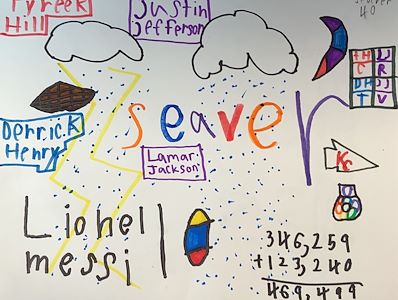 Tyreek
Hill
Justin
Jefferson
40
seaver
Derrick
Henry
Lamar
Jackson
Lionel
messi
Kc
346,259
+123,240
469,499